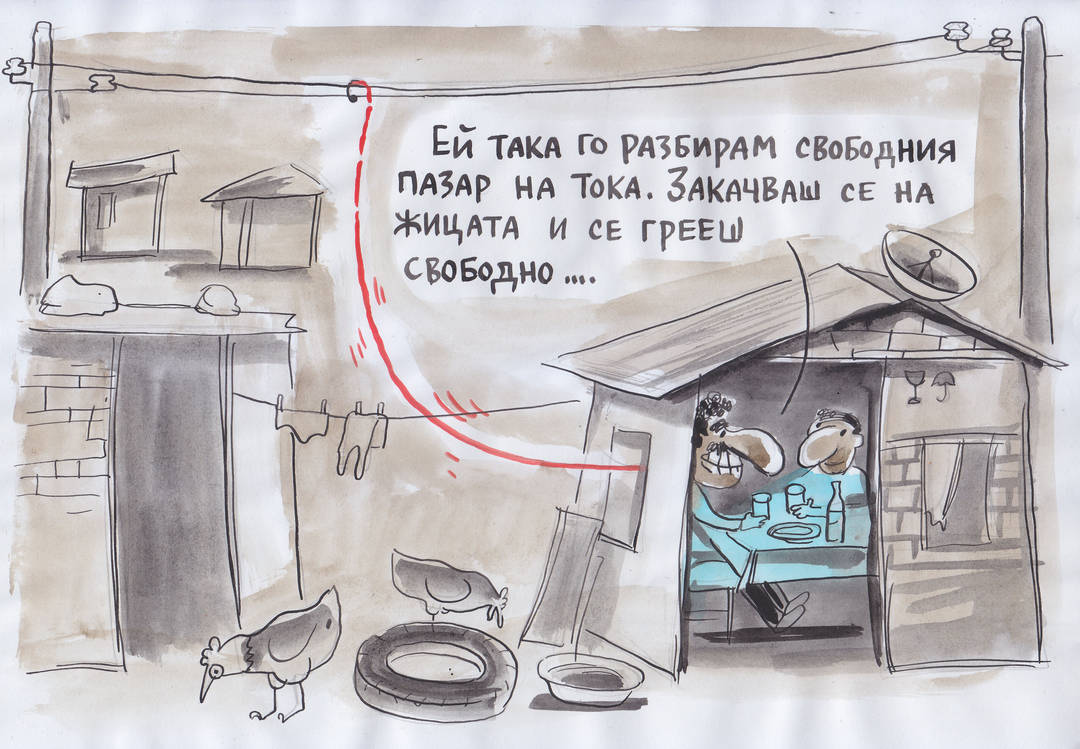 Ей така го разбирам свободния
пазар на тока. Закачваш се на
жицата и се грееш
свободно ....